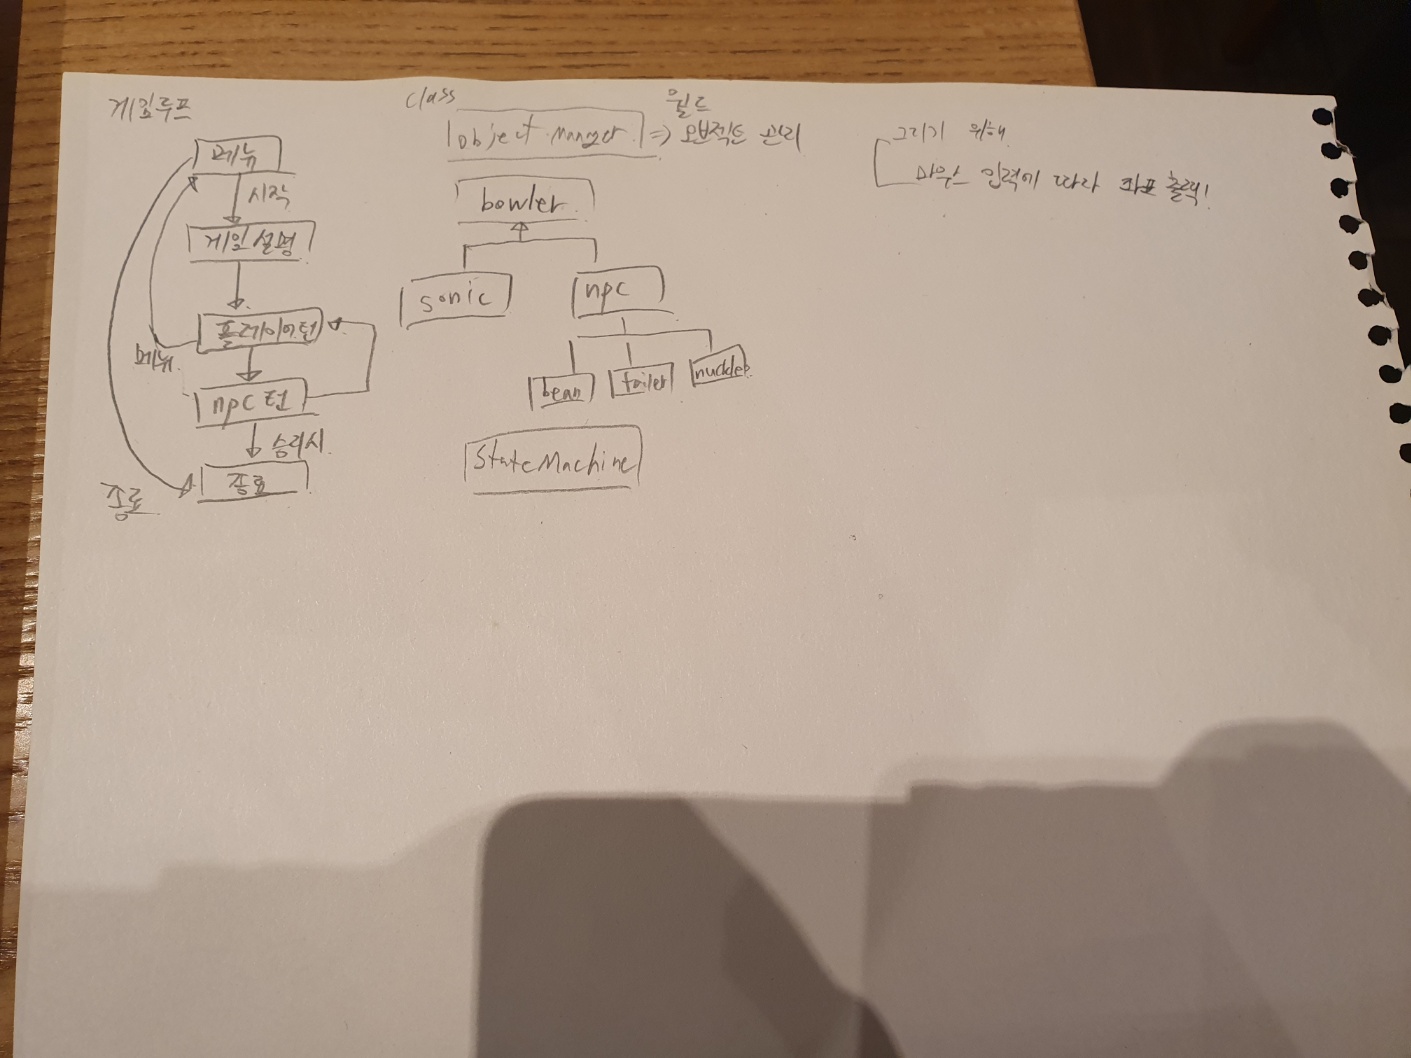 게임루프
메뉴
시작
게임설명
플레이어턴
메뉴
npc턴
승리시
종료
종료
class
월드
object manger => 오브젝트 관리
bowler
sonic
npc
bean
tailer
nuckles
StateMachine
그리기 위해
마우스 입력에 따라 좌표 출력!